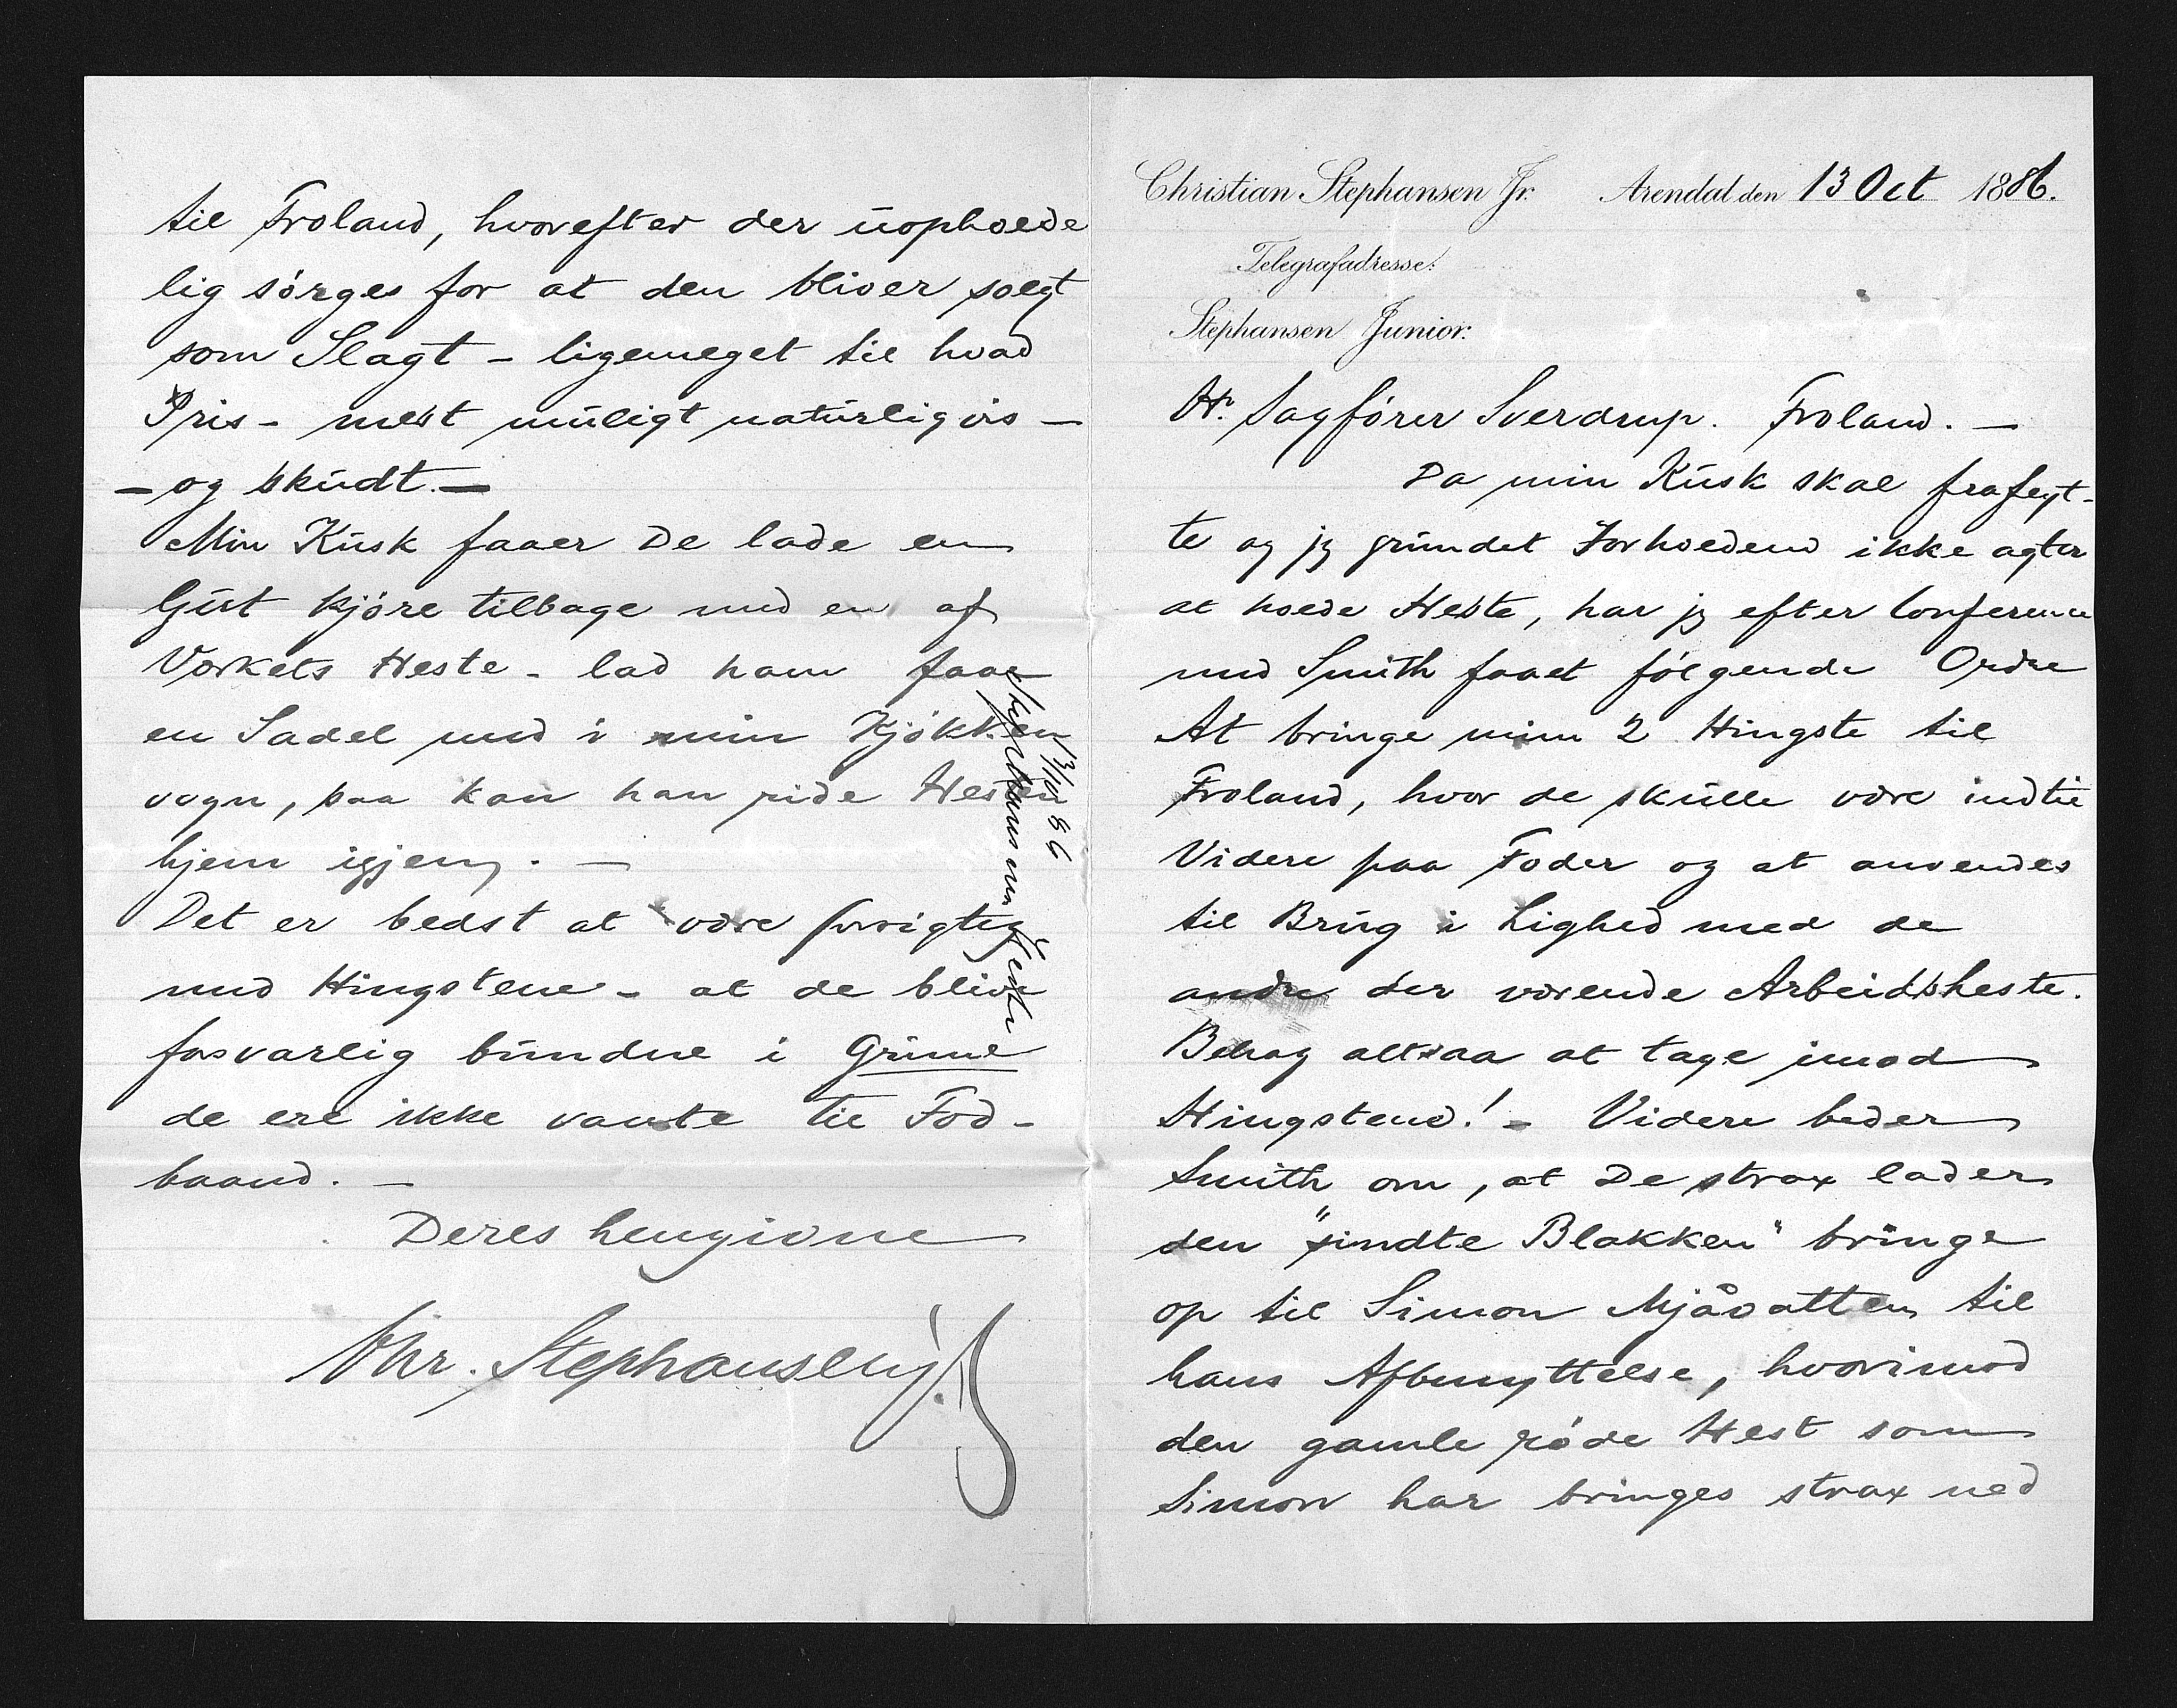 Christian Stephansen Jr. Arendal den 13 Oct 1886.
Telegrafadresse:
Stephansen Junior.
Hr. Sagfører Sverdrup. Froland. —
Da min Kusk skal fraflyt-
te og jg grundet Forholdene ikke agter
at holde Heste, har jg efter Conference
med Smith faaet følgende Ordre
At bringe mine 2 Hingste til
Froland, hvor de skulle være indtil
Videre paa Foder og at anvendes
til Brug i Lighed med de
andre der værende Arbeidsheste.
Behag altsaa at tage imod
Hingstene! – Videre beder
Smith om, at De strax lader
den "sindte Blakken" bringe
op til Simon Mjåvatten til
hans Afbenyttelse, hvorimod
den gamle røde Hest som
Simon har bringes strax ned
til Froland, hvorefter der uopholde
lig sørges for at den bliver solgt
som Slagt – ligemeget til hvad
Pris – mest muligt naturligvis –
– og skudt. —
Min Kusk faaer De lade en
Gut kjøre tilbage med en af
Værkets Heste – lad ham faae
en Sadel med i min Kjøkken
vogn, saa kan han ride Hesten
hjem igjen. —
Det er bedst at være forsigtig
med Hingstene – at de blive
forsvarlig bundne i Grime
de ere ikke vante til Fod-
baand. —
Deres hengivne
Chr. Stephansen j.
13/10 86
Stephansen